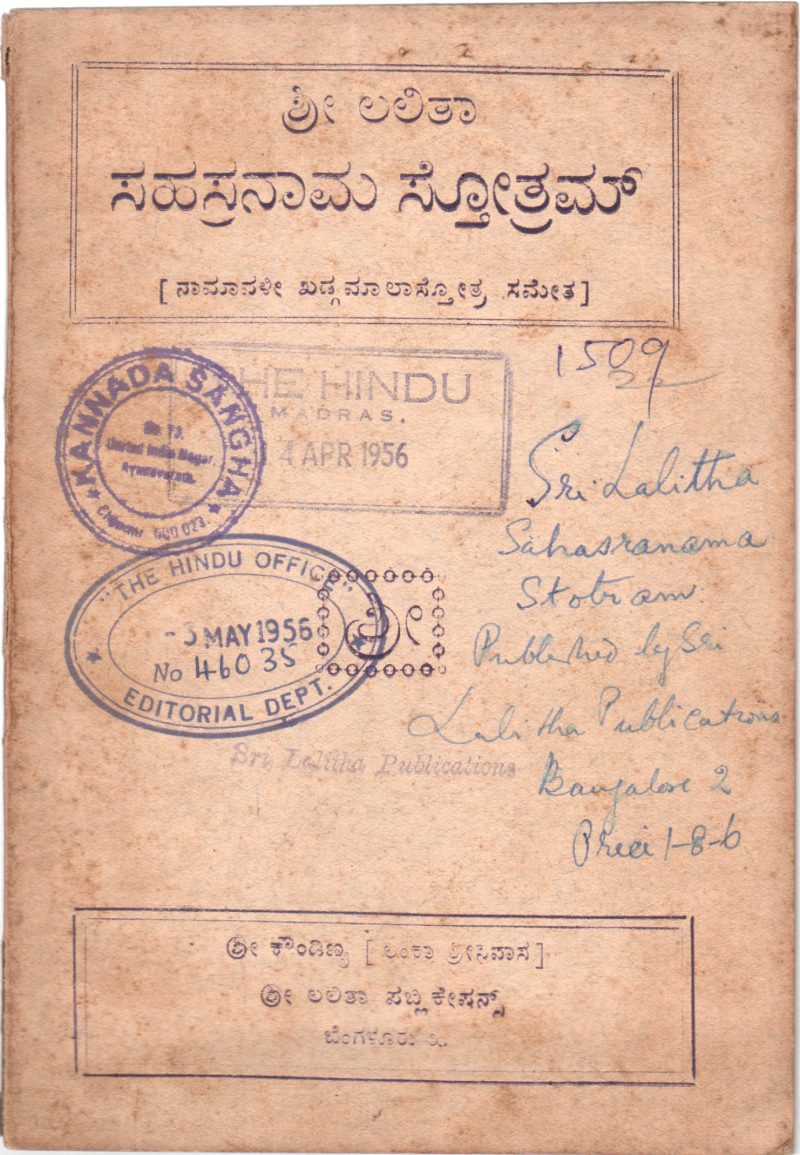 ಶ್ರೀ ಲಲಿತಾ
ಸಹಸ್ರನಾಮ ಸ್ತೋತ್ರಮ್
[ ನಾಮಾವಳೀ ಖಡ್ಗಮಾಲಾಸ್ತೋತ್ರ ಸಮೇತ ]
1509
KANNADA SANGHA
No. 73,
United India Nagar,
Ayanavaram.
600 023
THE HINDU
MADRAS.
4 APR 1956
Sri Lalitha
Sahasranama
Stotram.
Published by Sri
Lalitha Publications
Bangalore 2
Price 1-8-6
"THE HINDU OFFICE"
-3 MAY 1956
No 46035
EDITORIAL DEPT.
ಶ್ರೀ
Sri Lalitha Publications
ಶ್ರೀ ಕೌಂಡಿಣ್ಯ [ ಲಂಕಾ ಶ್ರೀನಿವಾಸ ]
ಶ್ರೀ ಲಲಿತಾ ಪಬ್ಲಿಕೇಷನ್ಸ್
ಬೆಂಗಳೂರು ೨.